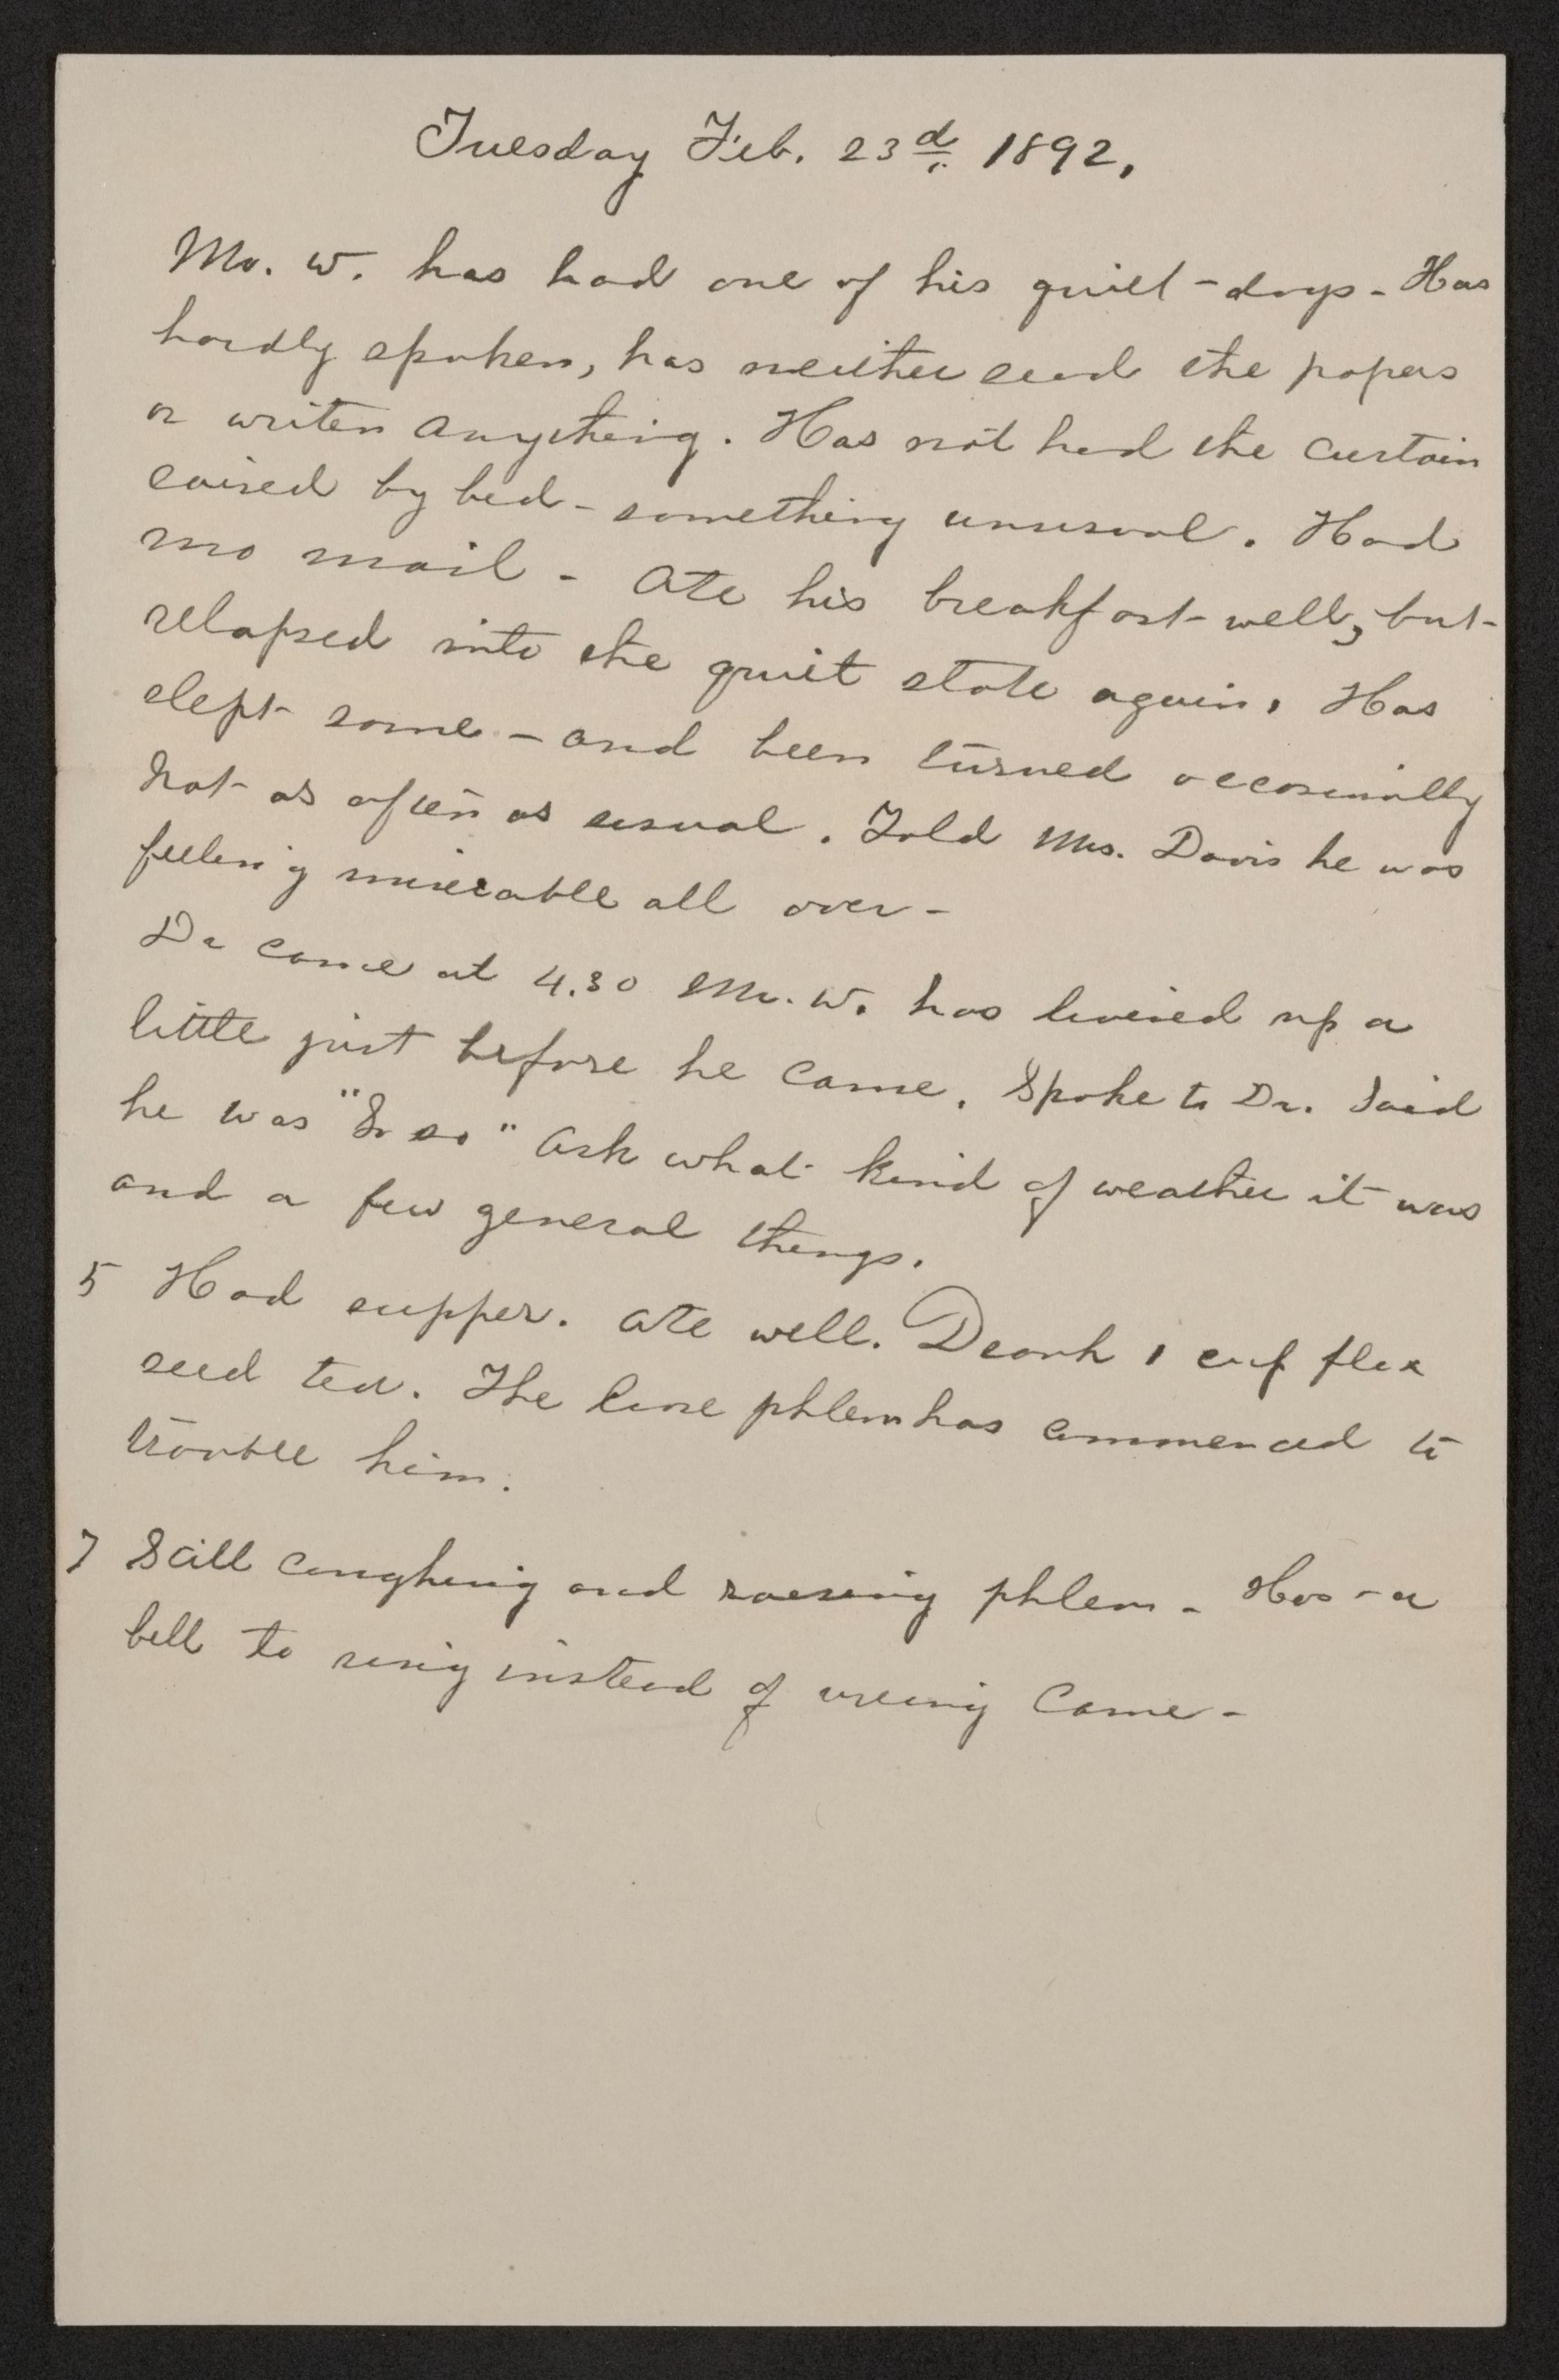 Tuesday Feb. 23d. 1892.
Mr. W. has had one of his quiet-days- Has
hardly spoken, has neither read the papers
or writen anything. Has not had the curtain
raised by bed- something unusual. Had
no mail - Ate his breakfast well, but
relapsed into the quiet state again. Has
slept some - and been turned occosinally
Not as often as usual. Told Mrs. Davis he was
feeling miserable all over-
Dr came at 4.30 Mr. W. has livened up a
little just before he came. Spoke to Dr. Said
he was "So so" ask what kind of weather it was
and a few general things.
5 Had supper. Ate well. Drank 1 cup flax
seed tea. The phlem has commenced to
trouble him.
7 Still coughing and raesing phlem - Has-a
bell to ring instead of useing Cane-